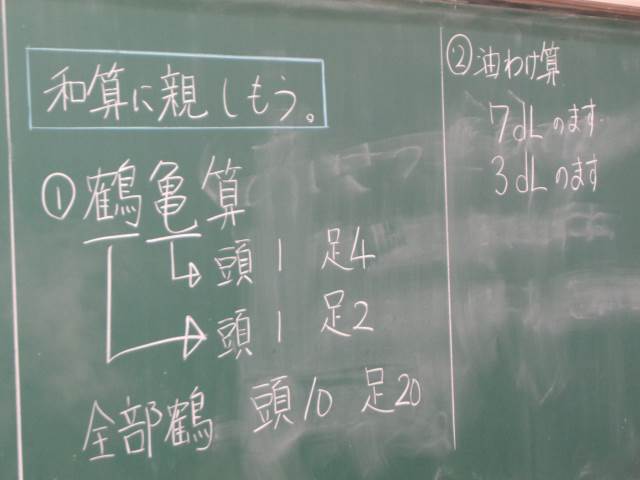 和算に親しもう。
①鶴亀算
頭1 足4
頭1 足2
全部鶴 頭10 足20
②油わけ算
7dLのます
3dLのます